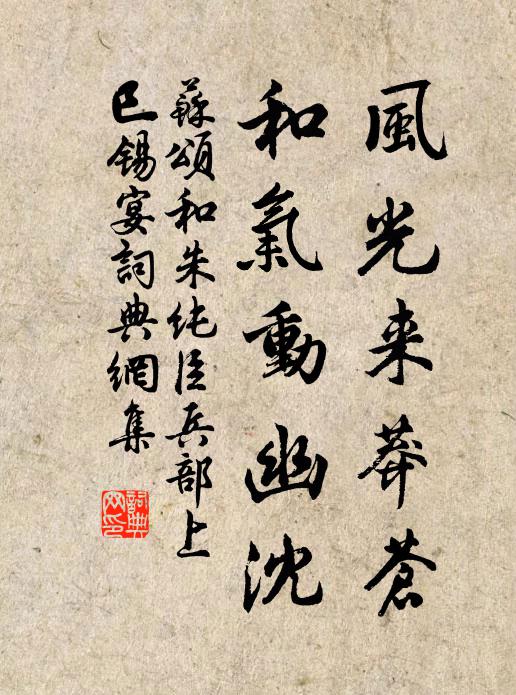 風光来莽蒼
和氣動幽沈
蘇頌和朱純臣兵部上
巳錫宴詞典網集
詞典网印